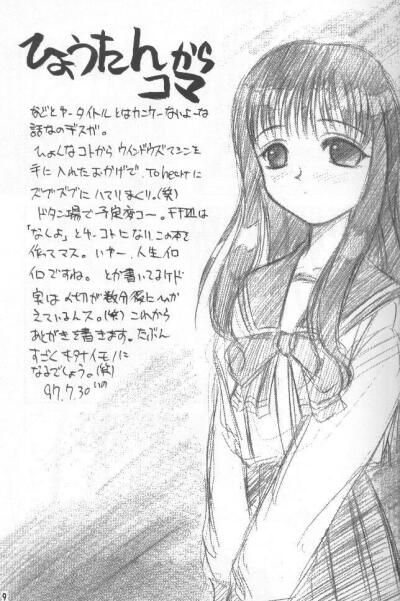 ひょうたんから
コマ
などとゆータイトルとはカンケーないよーな
話なのデスガ。
ひょんなコトからウインドウズマシンを
手に入れたおかげで、To heartに
ズブズブにハマりまくり。(笑)
ドタン場で予定変コー。FFⅦは
「なしよ」とゆーコトになりこの本を
作ってマス。いやー、人生イロ
イロですね。とか書いてるケド
実は〆切が数分後にひか
えているんス。(笑)これから
あとがきを書きます。たぶん
すごくキタナイモノに
なるでしょう。(笑)
97.7.30
9